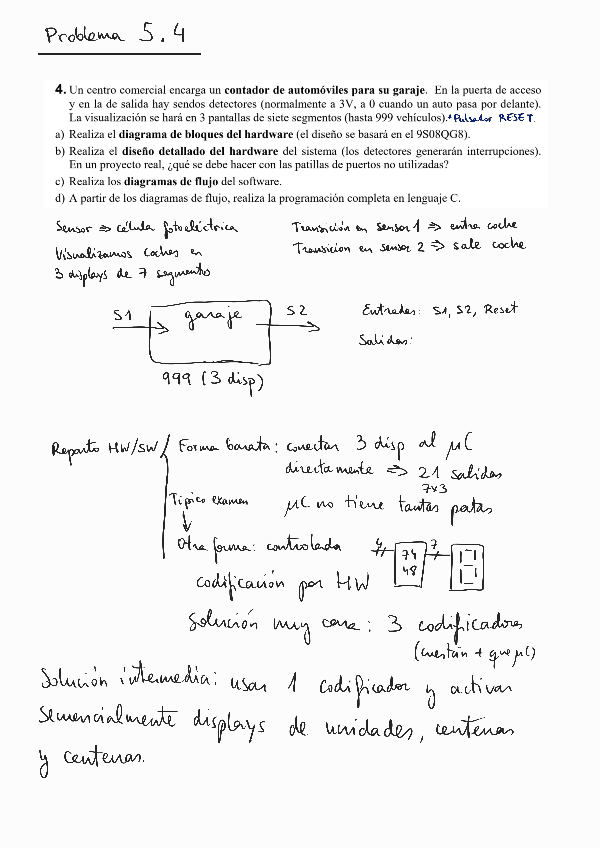 Problema 5.4
4. Un centro comercial encarga un contador de automóviles para su garaje. En la puerta de acceso
y en la de salida hay sendos detectores (normalmente a 3V, a 0 cuando un auto pasa por delante).
La visualización se hará en 3 pantallas de siete segmentos (hasta 999 vehículos).* Pulsador RESET.
a) Realiza el diagrama de bloques del hardware (el diseño se basará en el 9S08QG8).
b) Realiza el diseño detallado del hardware del sistema (los detectores generarán interrupciones).
En un proyecto real, ¿qué se debe hacer con las patillas de puertos no utilizadas?
c) Realiza los diagramas de flujo del software.
d) A partir de los diagramas de flujo, realiza la programación completa en lenguaje C.
Sensor => célula fotoeléctrica
Transición en sensor 1 => entra coche
Visualizamos coches en
Transicion en sensor 2 => sale coche
3 displays de 7 segmentos
S1 garaje S2
Entradas: S1, S2, Reset
Salidas:
999 (3 disp)
Reparto HW/SW
Forma barata: conectar 3 disp al μC
directamente => 21 salidas
7x3
Típico examen
μC no tiene tantas patas
Otra forma: controlada
4 74 48 7
codificación por HW
Solución muy cara: 3 codificadores
(cuestan + que μC)
Solución intermedia: usar 1 codificador y activar
secuencialmente displays de unidades, centenas
y centenas.